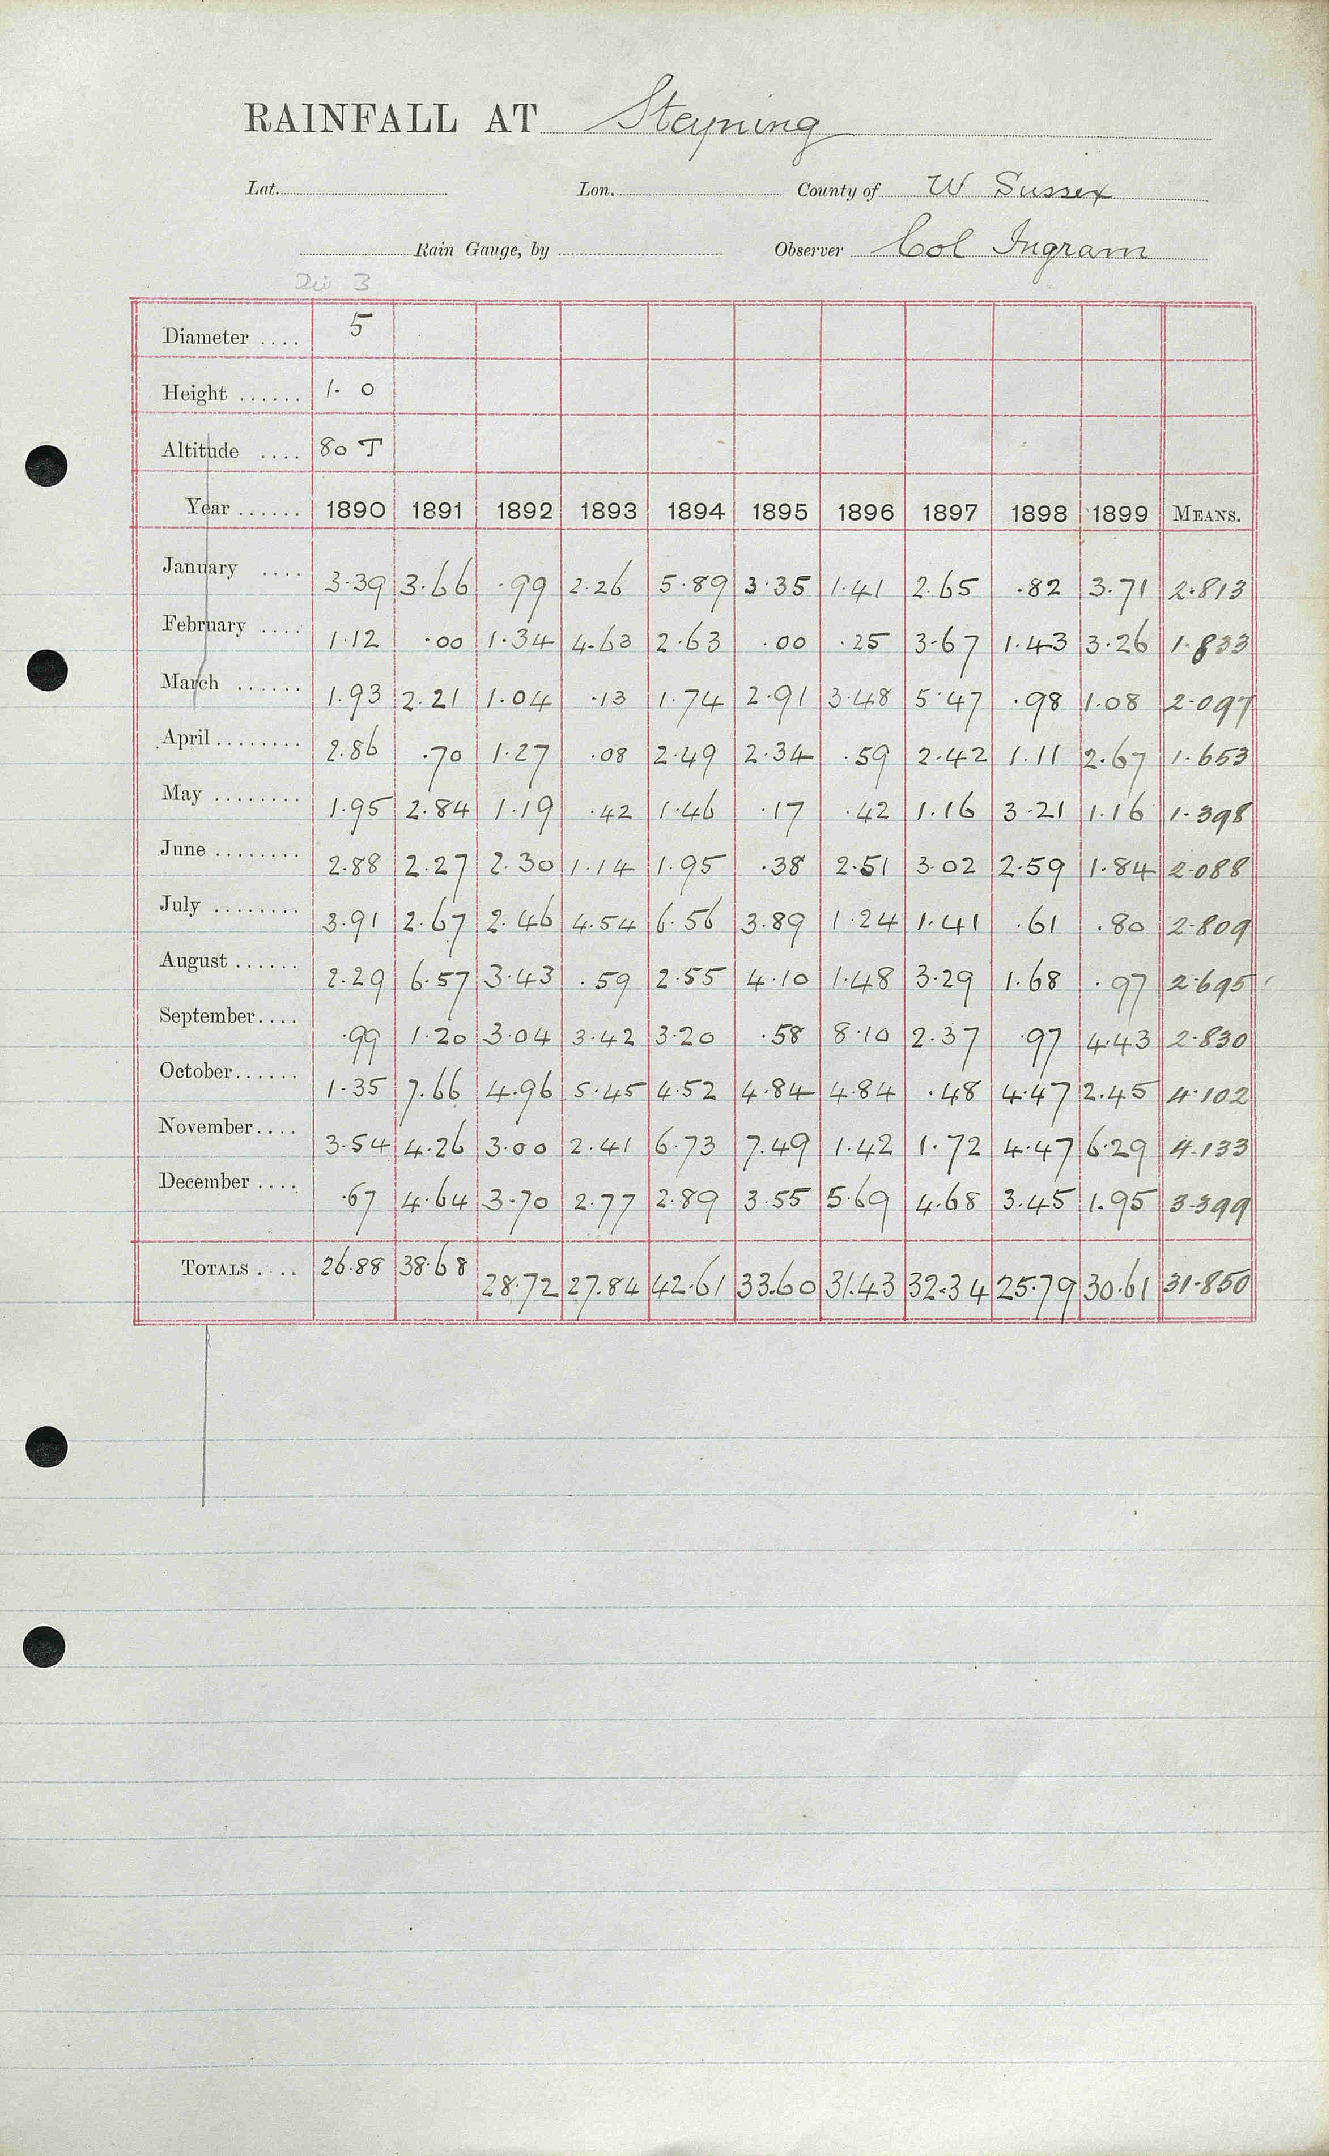 RAINFALL AT Steyning
Lat. Lon. County of W Sussex
Rain Gauge, by Observer Col Ingram
Div 3
Diameter .... 5
Height ...... 1. 0
Altitude .... 80 T
Year ...... 1890 1891 1892 1893 1894 1895 1896 1897 1898 1899 MEANS.
January .... 3.39 3.66 .99 2.26 5.89 3.35 1.41 2.65 .82 3.71 2.813
February .... 1.12 .00 1.34 4.63 2.63 .00 .25 3.67 1.43 3.26 1.833
March ...... 1.93 2.21 1.04 .13 1.74 2.91 3.48 5.47 .98 1.08 2.097
April ........ 2.86 .70 1.27 .08 2.49 2.34 .59 2.42 1.11 2.67 1.653
May ........ 1.95 2.84 1.19 .42 1.46 .17 .42 1.16 3.21 1.16 1.398
June ........ 2.88 2.27 2.30 1.14 1.95 .38 2.51 3.02 2.59 1.84 2.088
July ........ 3.91 2.67 2.46 4.54 6.56 3.89 1.24 1.41 .61 .80 2.809
August ...... 2.29 6.57 3.43 .59 2.55 4.10 1.48 3.29 1.68 .97 2.695
September .... .99 1.20 3.04 3.42 3.20 .58 8.10 2.37 .97 4.43 2.830
October ...... 1.35 7.66 4.96 5.45 4.52 4.84 4.84 .48 4.47 2.45 4.102
November .... 3.54 4.26 3.00 2.41 6.73 7.49 1.42 1.72 4.47 6.29 4.133
December .... .67 4.64 3.70 2.77 2.89 3.55 5.69 4.68 3.45 1.95 3.399
TOTALS .... 26.88 38.68 28.72 27.84 42.61 33.60 31.43 32.34 25.79 30.61 31.850